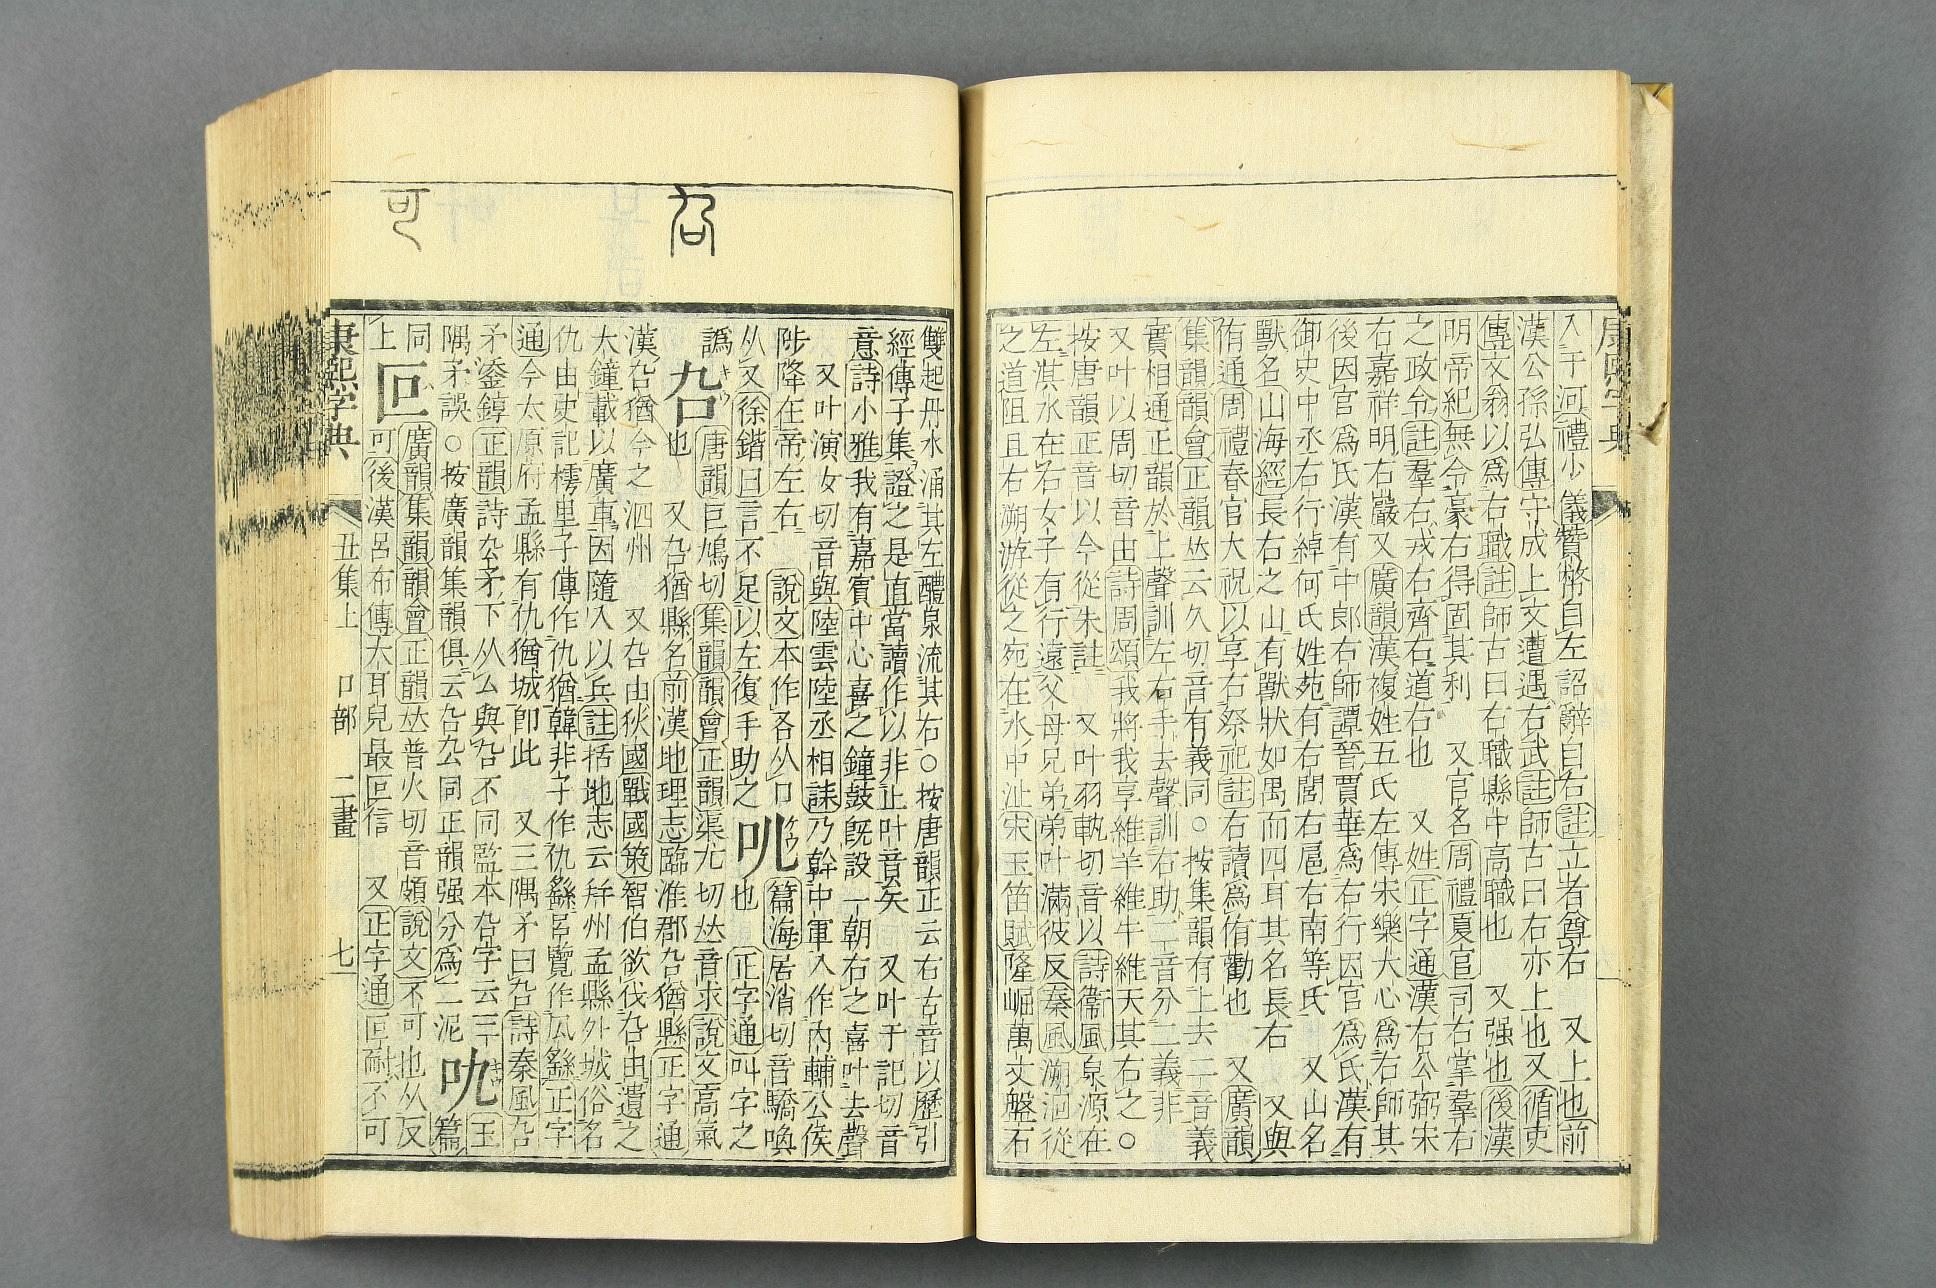 入于河禮少儀贊幣自左詔辭自右註立者尊右　又上也前
漢公孫弘傳守成上文遭遇右武註師古曰右亦上也又循吏
傳文翁以爲右職註師古曰右職縣中高職也　又强也後漢
明帝紀無令豪右得固其利　又官名周禮夏官司右掌羣右
之政令註羣右戎右齊右道右也　又姓正字通漢右公弼宋
右嘉祥明右巖又廣韻漢複姓五氏左傳宋樂大心爲右師其
後因官爲氏漢有中郎右師譚晉賈華爲右行因官爲氏漢有
御史中丞右行綽何氏姓苑有右閭右扈右南等氏　又山名
獸名山海經長右之山有獸狀如禺而四耳其名長右　又與
侑通周禮春官大祝以享右祭祀註右讀爲侑勸也　又廣韻
集韻韻會正韻𠀤云久切音有義同○按集韻有上去二音義
實相通正韻於上聲訓左右手去聲訓右助二音分二義非
又叶以周切音由詩周頌我將我享維羊維牛維天其右之○
按唐韻正音以今從朱註　又叶羽軌切音以詩衞風泉源在
左淇水在右女子有行遠父母兄弟弟叶滿彼反秦風溯洄從
之道阻且右溯游從之宛在水中沚宋玉笛賦隆崛萬丈盤石
雙起丹水涌其左醴泉流其右○按唐韻正云右古音以歷引
經傳子集證之是直當讀作以非止叶音矣　又叶于記切音
意詩小雅我有嘉賓中心喜之鐘鼓旣設一朝右之喜叶去聲
又叶演女切音與陸雲陸丞相誄乃幹中軍入作內輔公侯
陟降在帝左右　說文本作㕛从口
篇海居消切音驕喚
从又徐鍇曰言不足以左復手助之
叫
也　正字通叫字之
譌
厹
唐韻巨鳩切集韻韻會正韻渠尤切𠀤音求說文高氣
也　又厹猶縣名前漢地理志臨淮郡厹猶縣正字通
漢厹猶今之泗州　又厹由狄國戰國策智伯欲伐厹由遺之
大鐘載以廣車因隨入以兵註括地志云幷州孟縣外城俗名
仇由史記樗里子傳作仇猶韓非子作仇繇呂覽作厹繇正字
通今太原府孟縣有仇猶城卽此　又三隅矛曰厹詩秦風厹
矛鋈錞正韻詩厹矛下从厶與厹不同監本厹字云三
隅矛誤○按廣韻集韻俱云厹厹同正韻强分爲二泥
叴
玉
篇
同
叵
廣韻集韻韻會正韻𠀤普火切音頗說文不可也从反
上
可後漢呂布傳大耳兒最叵信　又正字通叵耐不可
康熙字典　丑集上　口部　二畫　七